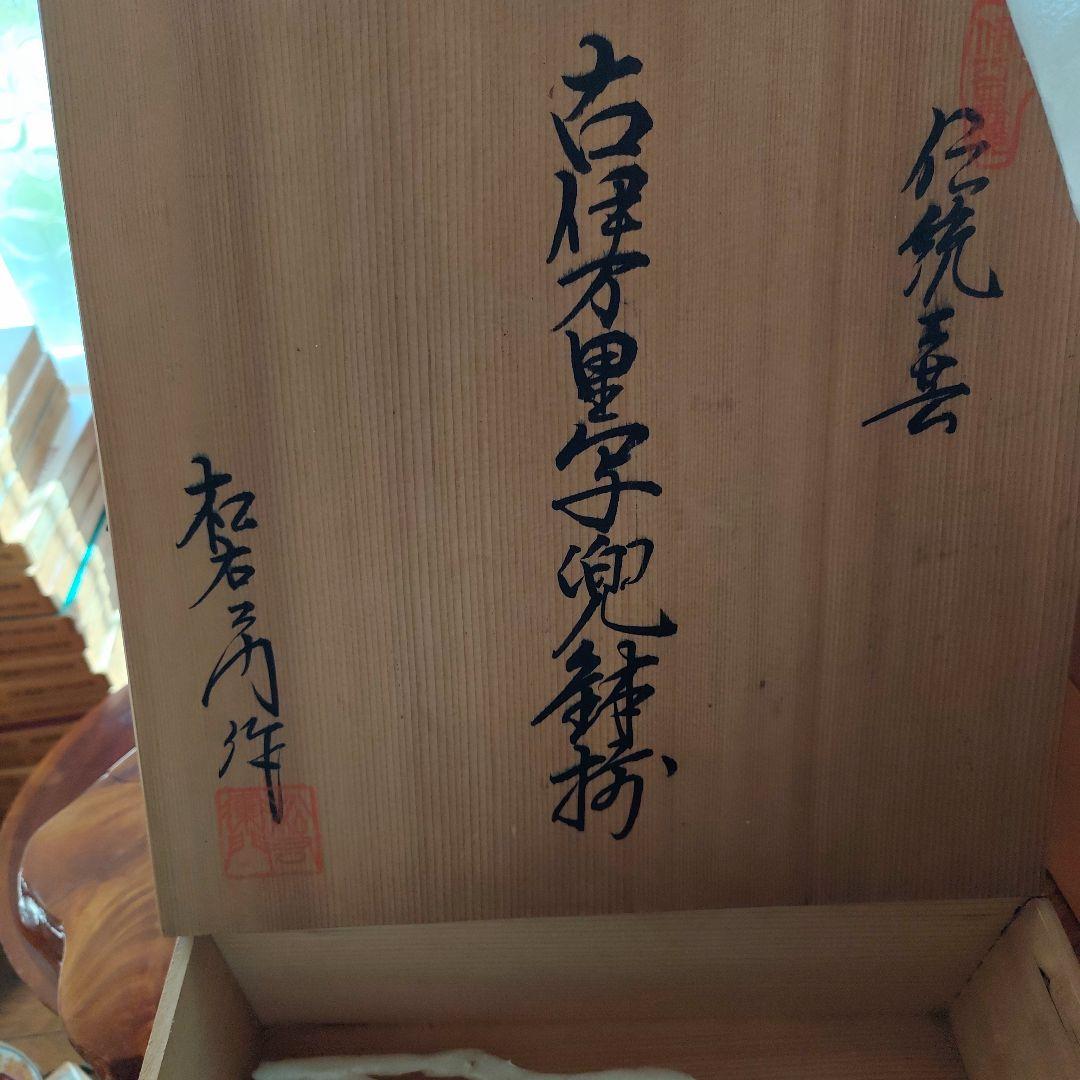 伝統工芸
古伊万里写兜鉢揃
松右エ門作